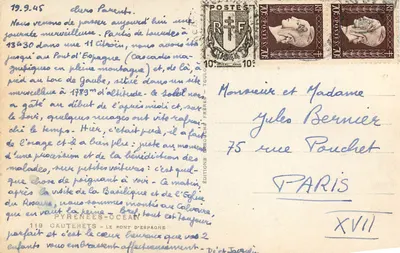 19.9.45 chers Parents.
Nous venons de passer aujourd'hui une
journée merveilleuse. Partis de Lourdes à
13h30 dans une 11 Citroën, nous avons été
jusqu'au Pont d'Espagne (cascades ma-
gnifiques en pleine montagne) et, de là, à
pied au lac de Gaube, situé dans un site
merveilleux à 1789m d'altitude. Le soleil nous
a gâté au début de l'après midi et, vers
le soir, quelques nuages ont vite rafraî-
le temps. Hier, c'était parfait, il a fait
de l'orage et il a bien plu : juste au moment
d'une procession et de la bénédiction des
malades, sur petites voitures : c'est quel-
que chose de poignant à voir. Le matin,
après la visite de la Basilique et de l'Eglise
du Rosaire, nous sommes montés au Calvaire,
que en vaut la peine. Bref, tout est toujours
parfait et c'est le cœur heureux que vos 2
enfants vous embrassent affectueusement.
PYRÉNÉES-OCÉAN
119 CAUTERETS - LE PONT D'ESPAGNE
POSTES
10c 10c
Monsieur et Madame
Jules Bernier
75 rue Pouchet
PARIS
XVII